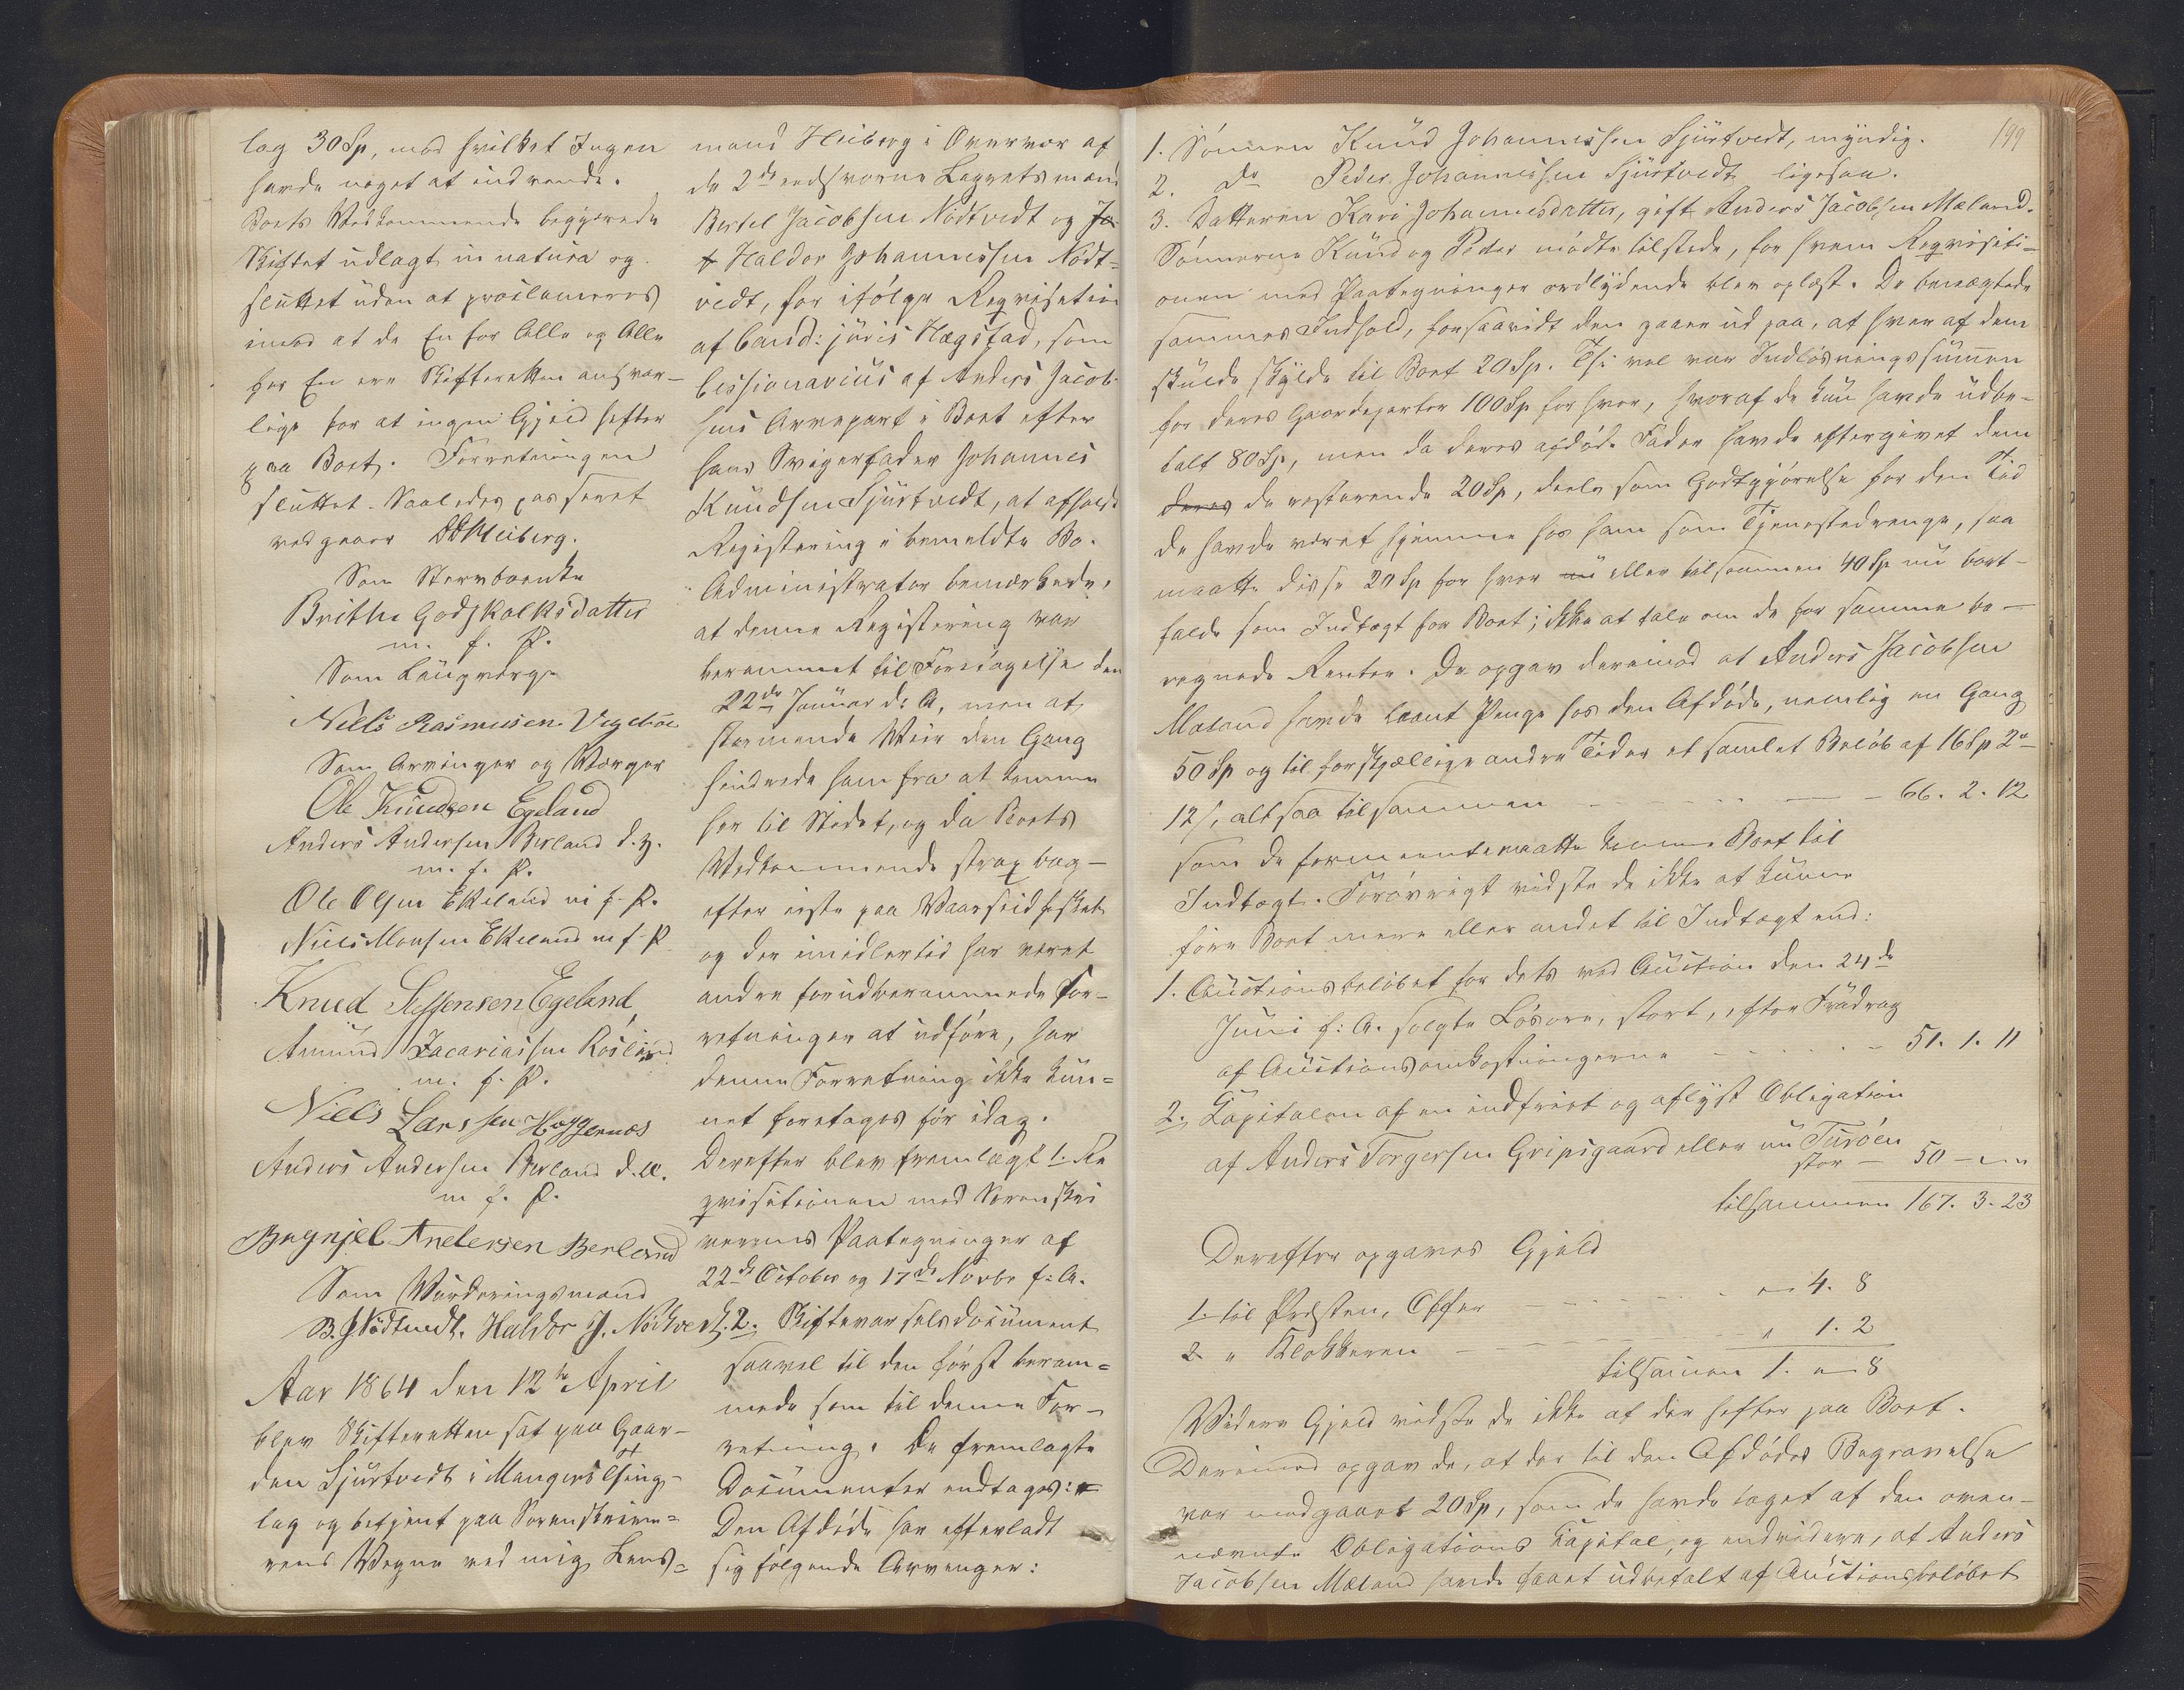 lag 30 Sp, mod hvilket Ingen
havde noget at indvende.
Boets Vedkommende begjærede
Skiftet udlagt in natura og
sluttet uden at proclameres
imod at de En for Alle og Alle
for En ere Skifteretten ansvar-
lige for at ingen Gjæld hefter
paa Boet. Forretningen
sluttet. Saaledes passeret
vedgaaes Heiberg.
Som Stervboenke
Brithe Godskalksdatter
m. f. P.
Som Laugværge
Niels Rasmusen
Som Arvinger og Værger
Ole Knudsen Egeland
Anders Andersen Berland d. y.
m. f. P.
Ole Olsen Ekeland m f. P.
Niels Monsen Ekeland m f. P
Knud Steffensen Egeland
Amund Zacariassen Rosland
m. f. P.
Niels Larssen Hoggernæs
Anders Andersen Berland d. æ.
m f. P.
Bagnjel Andersen Berland
Som Vurderingsmænd
B. J. Nödtvedt. Haldor J. Nödtvedt.
Aar 1864 den 12te April
blev Skifteretten sat paa Gaar-
den Sjurtvedt i Mangers Thing-
lag og betjent paa Sorenskrive-
rens Vegne ved mig Lens-
mand Heiberg i Overvær af
de 2de eedsvorne Lagrettsmænd
Bertel Jacobsen Nödtvedt og Jo
Haldor Johannessen Nödt-
vedt, for ifølge Reqvisition
af Cand: juris Hægstad, som
Cessionarius af Anders Jacob-
sens Arvepart i Boet efter
hans Svigerfader Johannes
Knudsen Sjurtvedt, at afholde
Registrering i bemeldte Bo.
Administrator bemærkede,
at denne Registrering var
berammet til Foretagelse den
22de Januar d: A, men at
stormende Veir den Gang
hindrede ham fra at komme
her til Stedet, og da Boets
Vedkommende strax bag-
efter reiste paa Vaarsildfisket
og der imidlertid har været
andre forudberammede For-
retninger at udføre, har
denne Forretning ikke kun-
net foretages før idag.
Derefter blev fremlagt 1. Re
qvisitionen med Sorenskri
verens Paategninger af
22de October og 17de Novbr f: A.
2. Skiftevarselsdocument
saavel til den først beram-
mede som til denne For-
retning. De fremlagte
Documenter indtages:
Den Afdøde har efterladt
sig følgende Arvinger:
199
1. Sönnen Knud Johannessen Sjurtvedt, myndig.
2. do Peder Johannessen Sjurtvedt ligesaa.
3. Datteren Kari Johannesdatter, gift Anders Jacobsen Mæland.
Sönnerne Knud og Peder mødte tilstede, for hvem Reqvisiti-
onen med Paategninger ordlydende blev oplæst. De benægtede
sammes Indhold, forsaavidt den gaaer ud paa, at hver af dem
skulde skylde til Boet 20 Sp. Thi vel var Indløsningssummen
for deres Gaardeparter 100 Sp for hver, hvoraf de kun havde udbe-
talt 80 Sp, men da deres afdøde Fader havde eftergivet dem
deres de resterende 20 Sp, deels som Godtgjørelse for den Tid
de havde været hjemme hos ham som Tjenestedrenge, saa
maatte disse 20 Sp for hver nu eller tilsammen 40 Sp nu bort-
falde som Indtægt for Boet; ikke at tale om de for samme be-
regnede Renter. De opgav derimod at Anders Jacobsen
Mæland havde laant Penge hos den Afdøde, nemlig en Gang
50 Sp og til forskjællige andre Tider et samlet Beløb af 16 Sp 2
12 s, altsaa tilsammen - - - 66. 2. 12
som de formeente maatte komme Boet til
Indtægt. Forøvrigt vidste de ikke at kunne
føre Boet mere eller andet til Indtægt end:
1. Auctionsbeløbet for dets ved Auction den 24de
Juni f: A. solgte Løsøre, stort, efter Fradrag
af Auctionsomkostningerne - - - 51. 1. 11
2. Kapitalen af en indfriet og aflyst Obligation
af Anders Torgersen Gripsgaard eller nu Turöen
stor - 50 - " - "
tilsammen 167. 3. 23
Derefter opgaves Gjæld
1. til Præsten, Offer - - - " 4. 8
2. " Klokkeren - - - " 1. 2
tilsamen 1. " 8
Videre Gjæld vidste de ikke at der hefter paa Boet.
Derimod opgav de, at der til den Afdødes Begravelse
var medgaaet 20 Sp, som de havde taget af den oven-
nævnte Obligations Kapital, og endvidere, at Anders
Jacobsen Mæland havde faaet udbetalt af Auctionsbeløbet